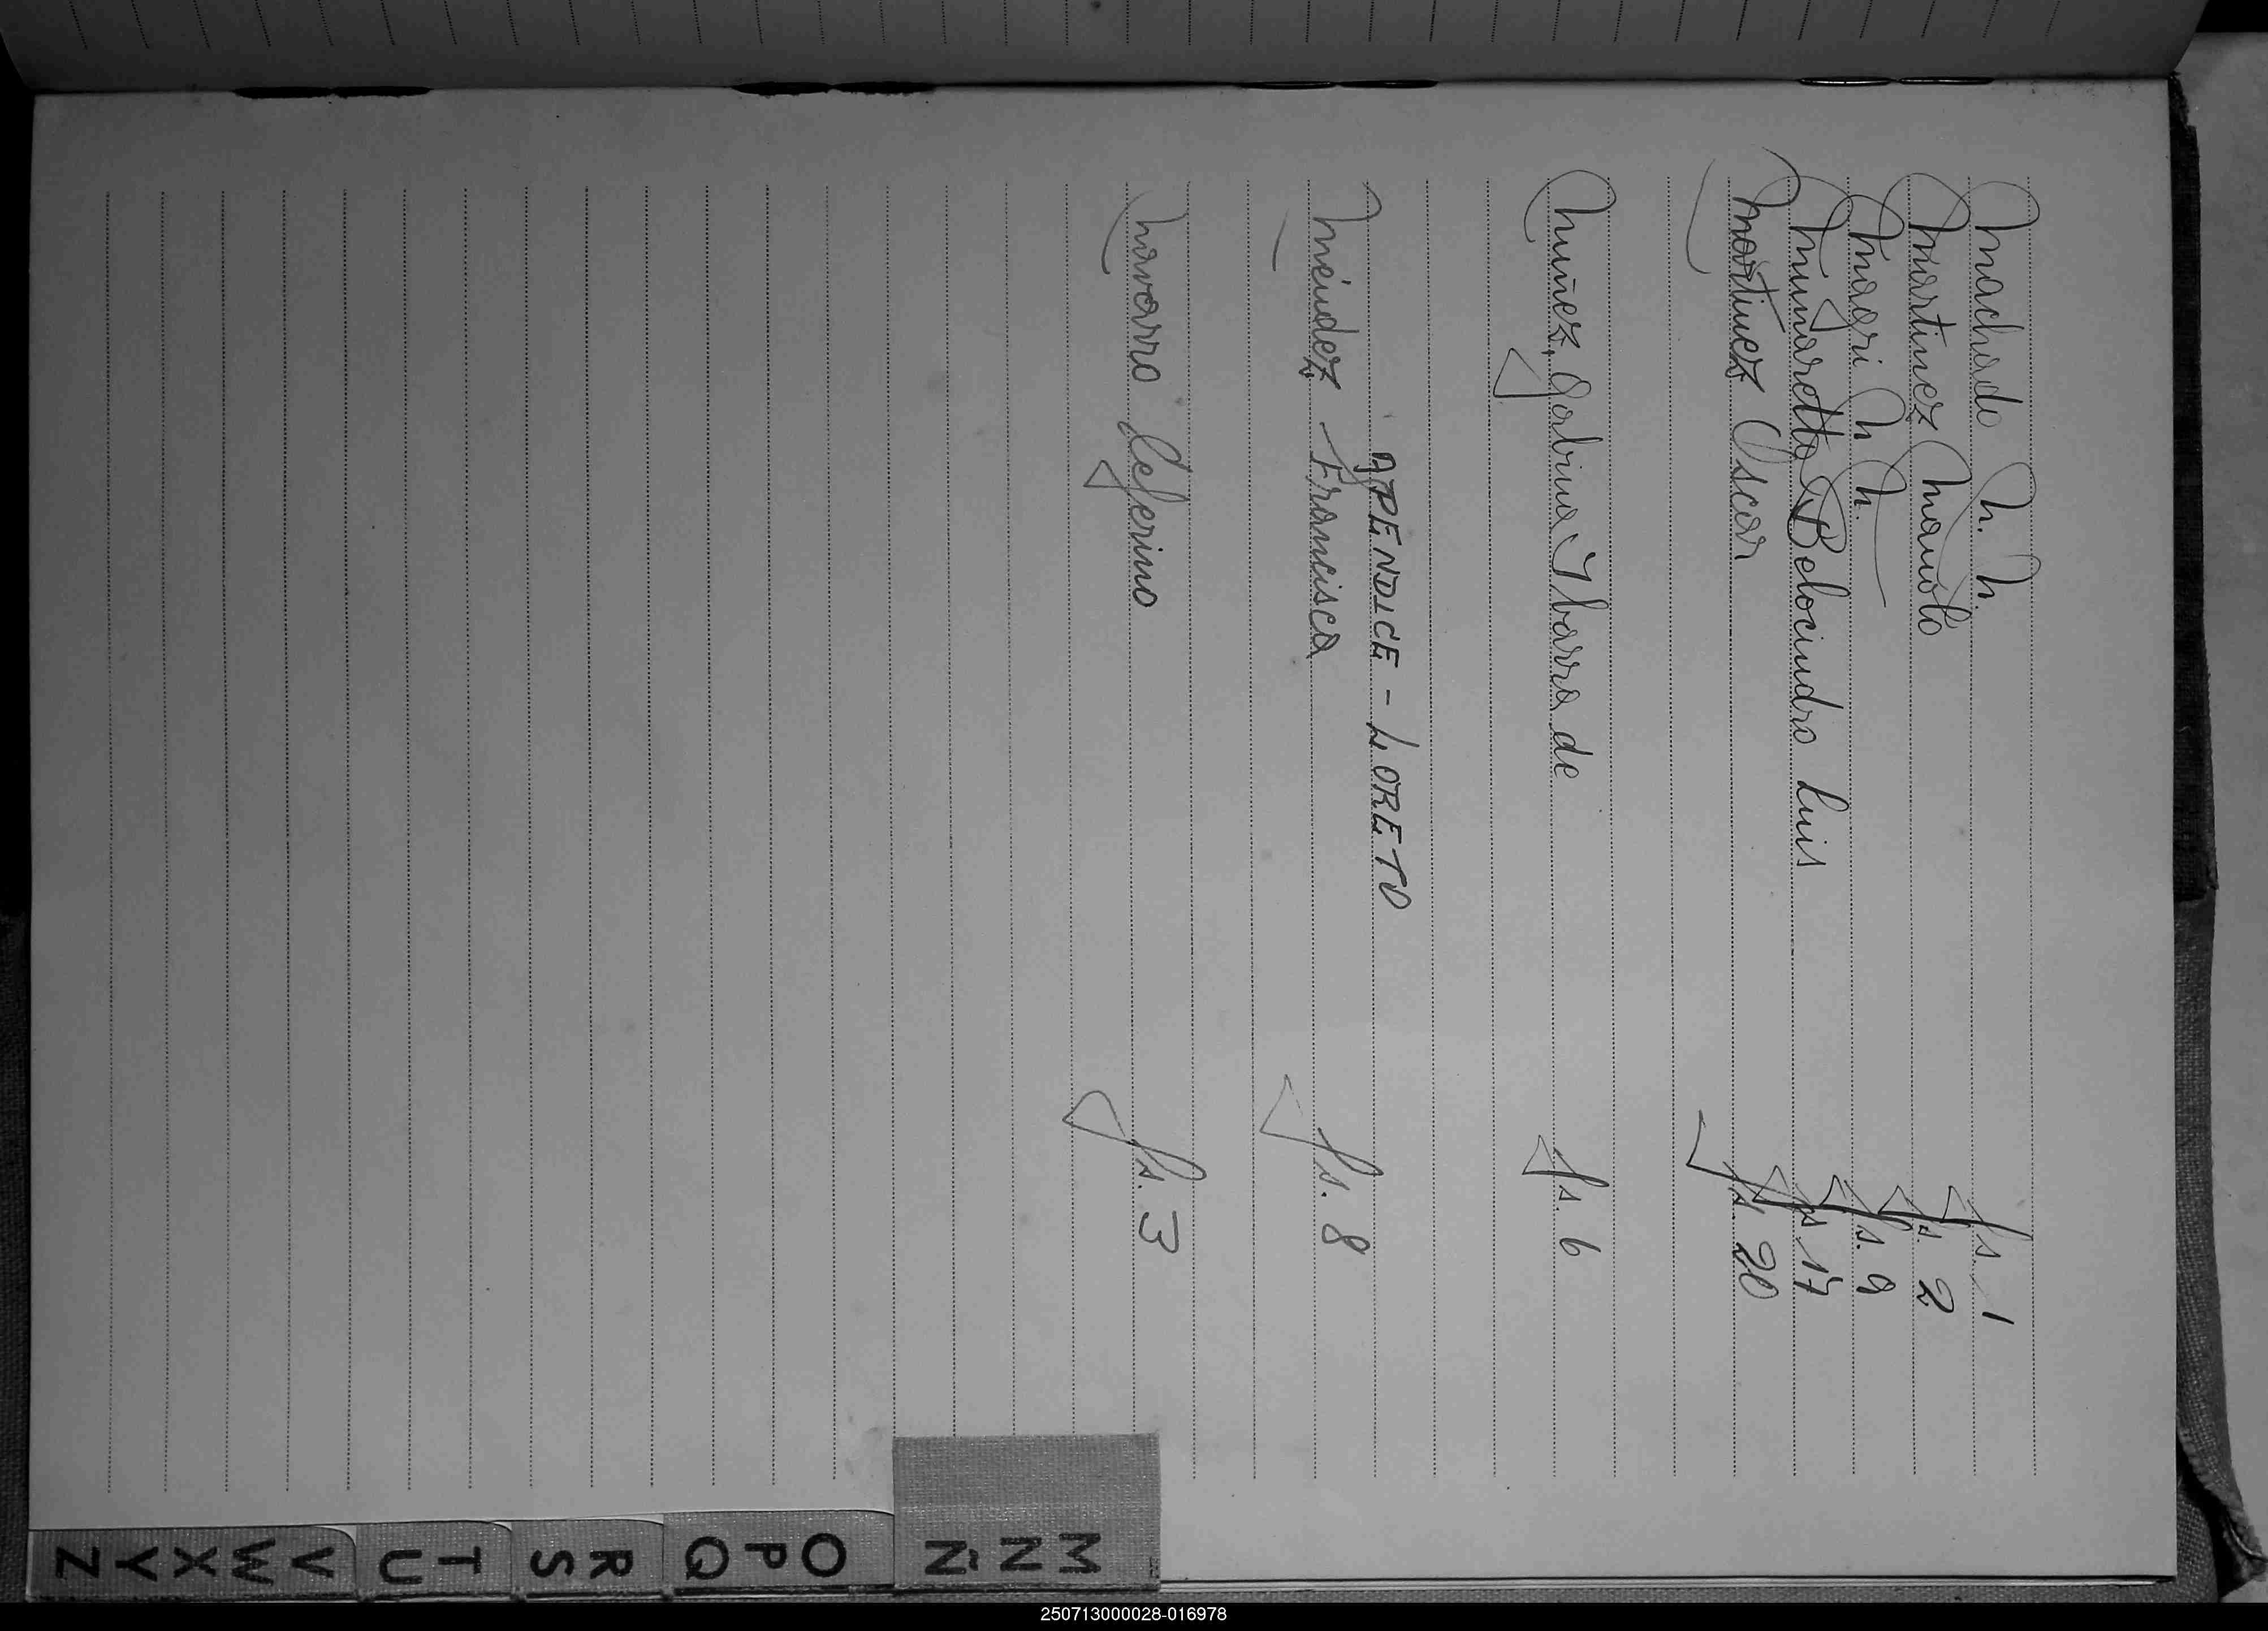 Machado N. N. fs. 1
Martinez Manolo fs. 2
Maori N N. fs. 9
Munaretto Belocindro Luis fs. 17
Martinez Oscar fs. 20
Nuñez, Gabina Ybarra de fs. 6
APENDICE - LORETO
Méndez Francisca fs. 8
Navarro Ceferino fs. 3
M N Ñ
O P Q
R S
T U
V W X Y Z
250713000028-016978